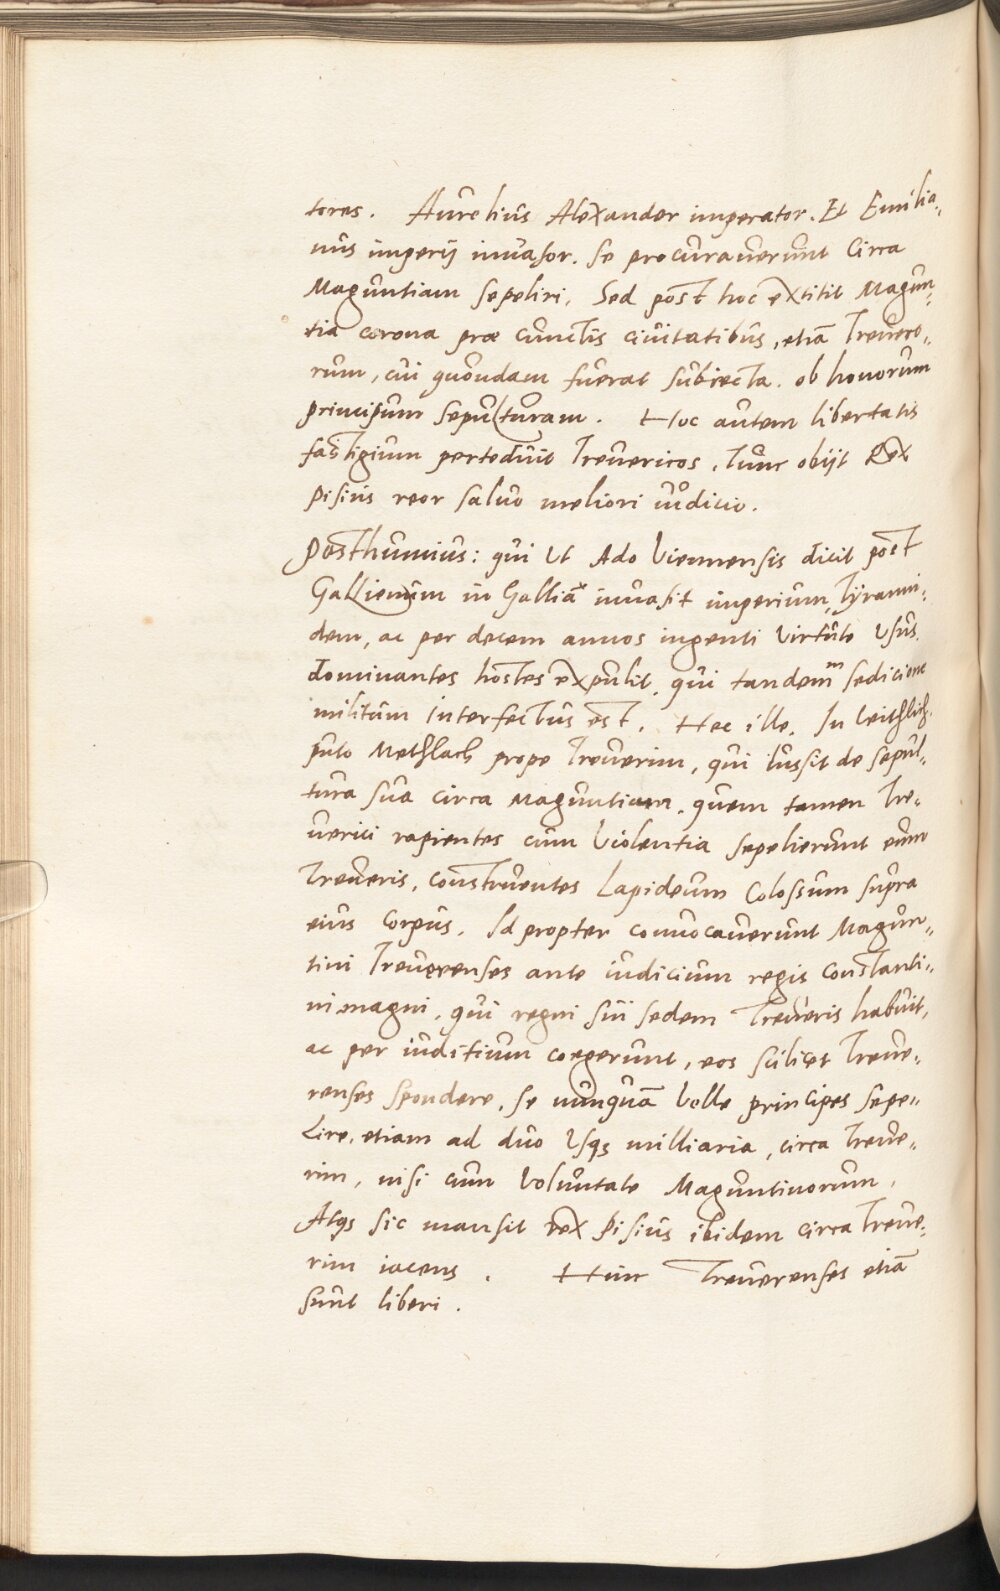 tores. Aurelius Alexander imperator. Et Emilia-
nus imperij inuasor. se procurauerunt Circa
Maguntiam sepeliri. Sed post hoc extitit Magun-
tia corona præ cunctis ciuitatibus, etiã Treuero-
rum, cui quondam fuerat subiecta. ob honorum
principum sepulturam. Hoc autem libertatis
fastigium perteduit Treuericos. Tunc obijt Rex
Pisius reor saluo meliori iuditio.
Posthumius: qui ut Ado Viennensis dicit post
Gallienum in Gallia inuasit imperium, Tyranni-
dem, ac per decem annos ingenti virtute usus.
dominantes hostes expulit. qui tandem sedicione
militum interfectus est. Hec ille. In
puto Methlach prope Treuerim, qui iussit de sepul-
tura sua circa Maguntiam. quem tamen Tre-
uerici rapientes cum violentia sepelierunt eum
Treueris, construentes Lapideum Colossum supra
eius Corpus. Id propter conuocauerunt Magun-
tini Treuerenses ante iudicium regis Constanti-
ni magni, qui regni sui sedem Treueris habuit,
ac per iuditium coegerunt, eos scilicet Treue-
renses spondere, se nunquã velle principes sepe-
Lire, etiam ad duo Usqs milliaria, circa Treue-
rim, nisi cum voluntate Maguntinorum,
Atqs sic mansit rex Pisius ibidem circa Treue-
rim iacens. Hinc Treuerenses etiã
sunt liberi.